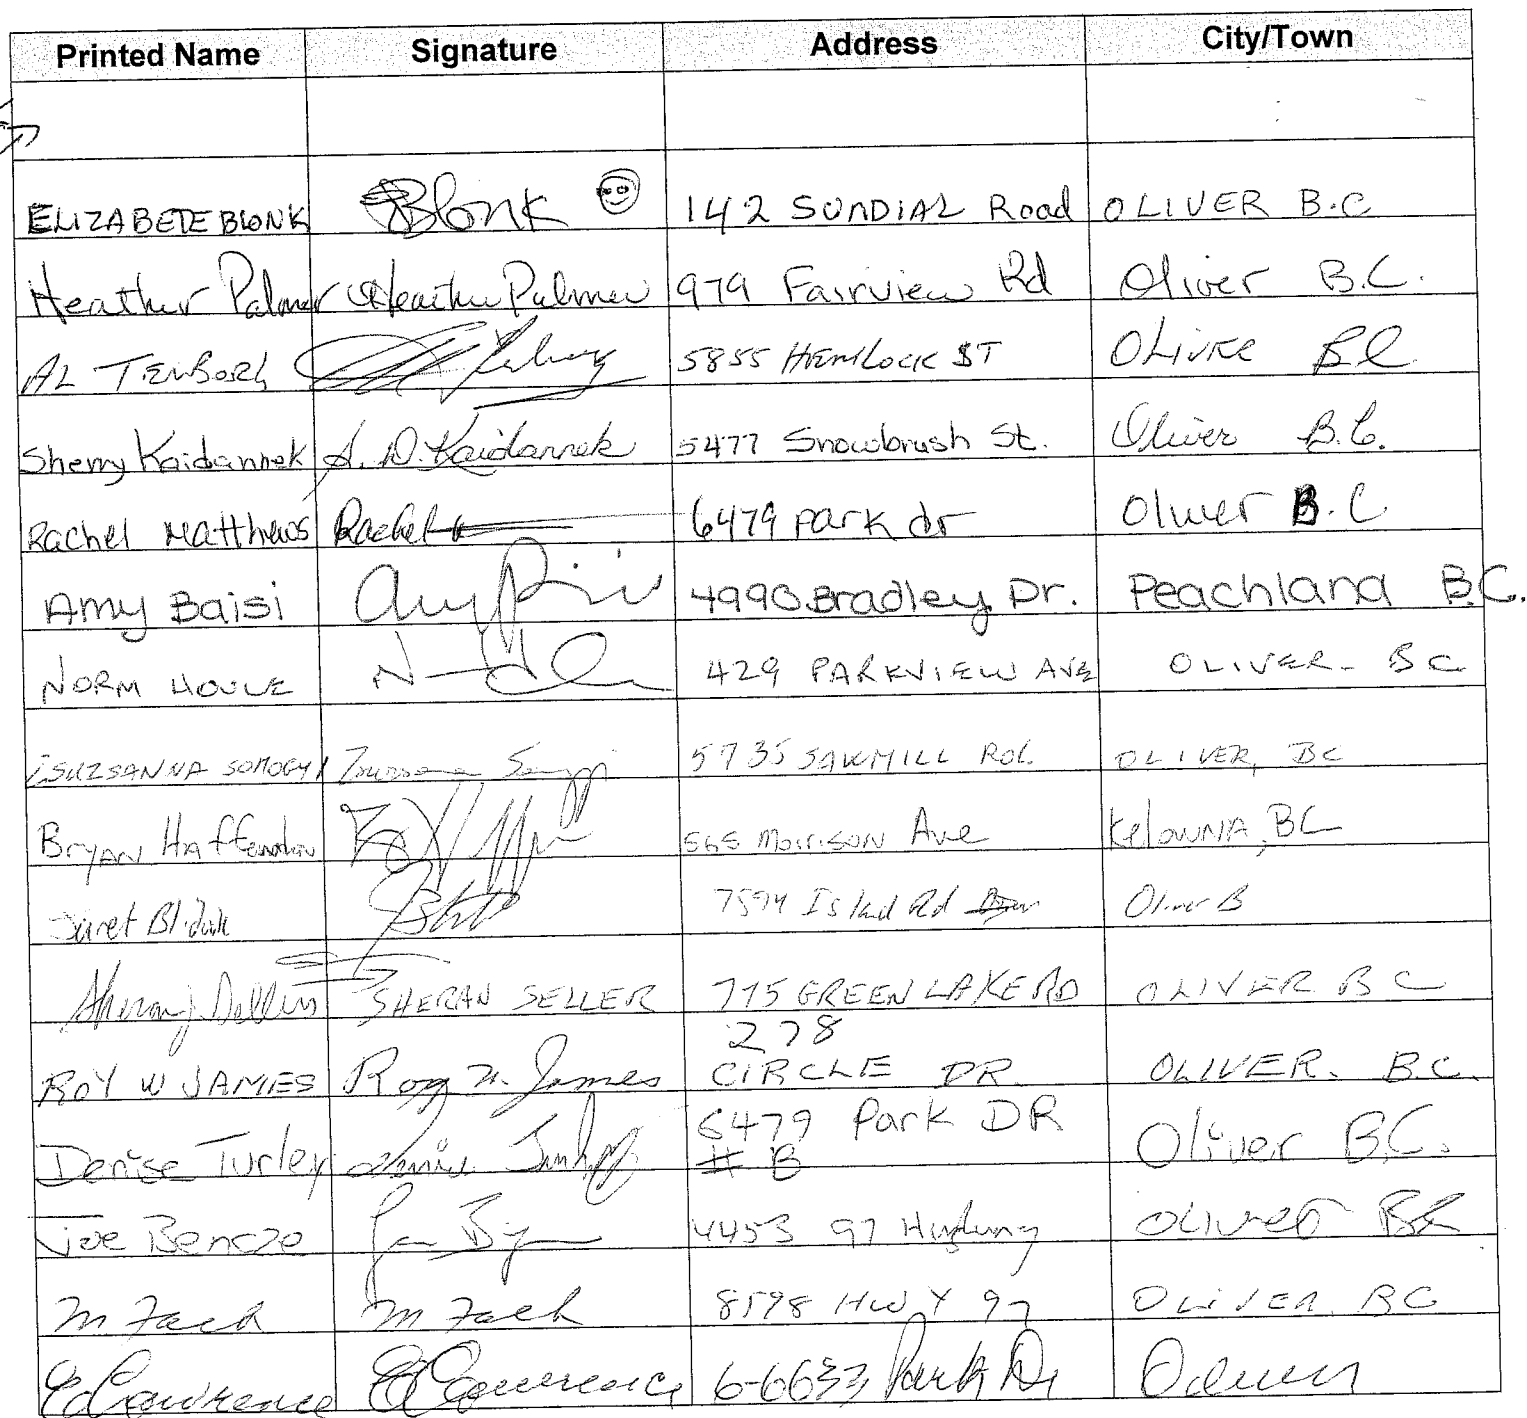 Printed Name Signature Address City/Town
ELIZABETE BLONK Blonk 142 SUNDIAL Road OLIVER B.C
Heather Palmer Heather Palmer 979 Fairview Rd Oliver B.C.
AL 5855 HEMLOCK ST OLIVER BC
Sherry Kaidannek S. D. Kaidannek 5477 Snowbrush St. Oliver B.C.
Rachel Matthews Rachel 6479 park dr Oliver B.C
Amy Baisi Amy 4990 Bradley Dr. Peachland B.C.
NORM HOULE 429 PARKVIEW AVE OLIVER - BC
SOMOGYI 5735 SAWMILL Rd. OLIVER, BC
Bryan 565 Morrison Ave Kelowna, BC
7594 Island Rd Oliver B
SHERAN SELLER 775 GREEN LAKE RD OLIVER BC
278
ROY W JAMES Roy W. James CIRCLE DR. OLIVER. B.C.
6479 Park DR
Denise Turley Denise # B Oliver B.C.
Joe Bencze 4453 97 Highway Oliver BC
M 8598 HWY 97 OLIVER. BC
E Lawrence E Lawrence 6-6633 Park Dr Oliver